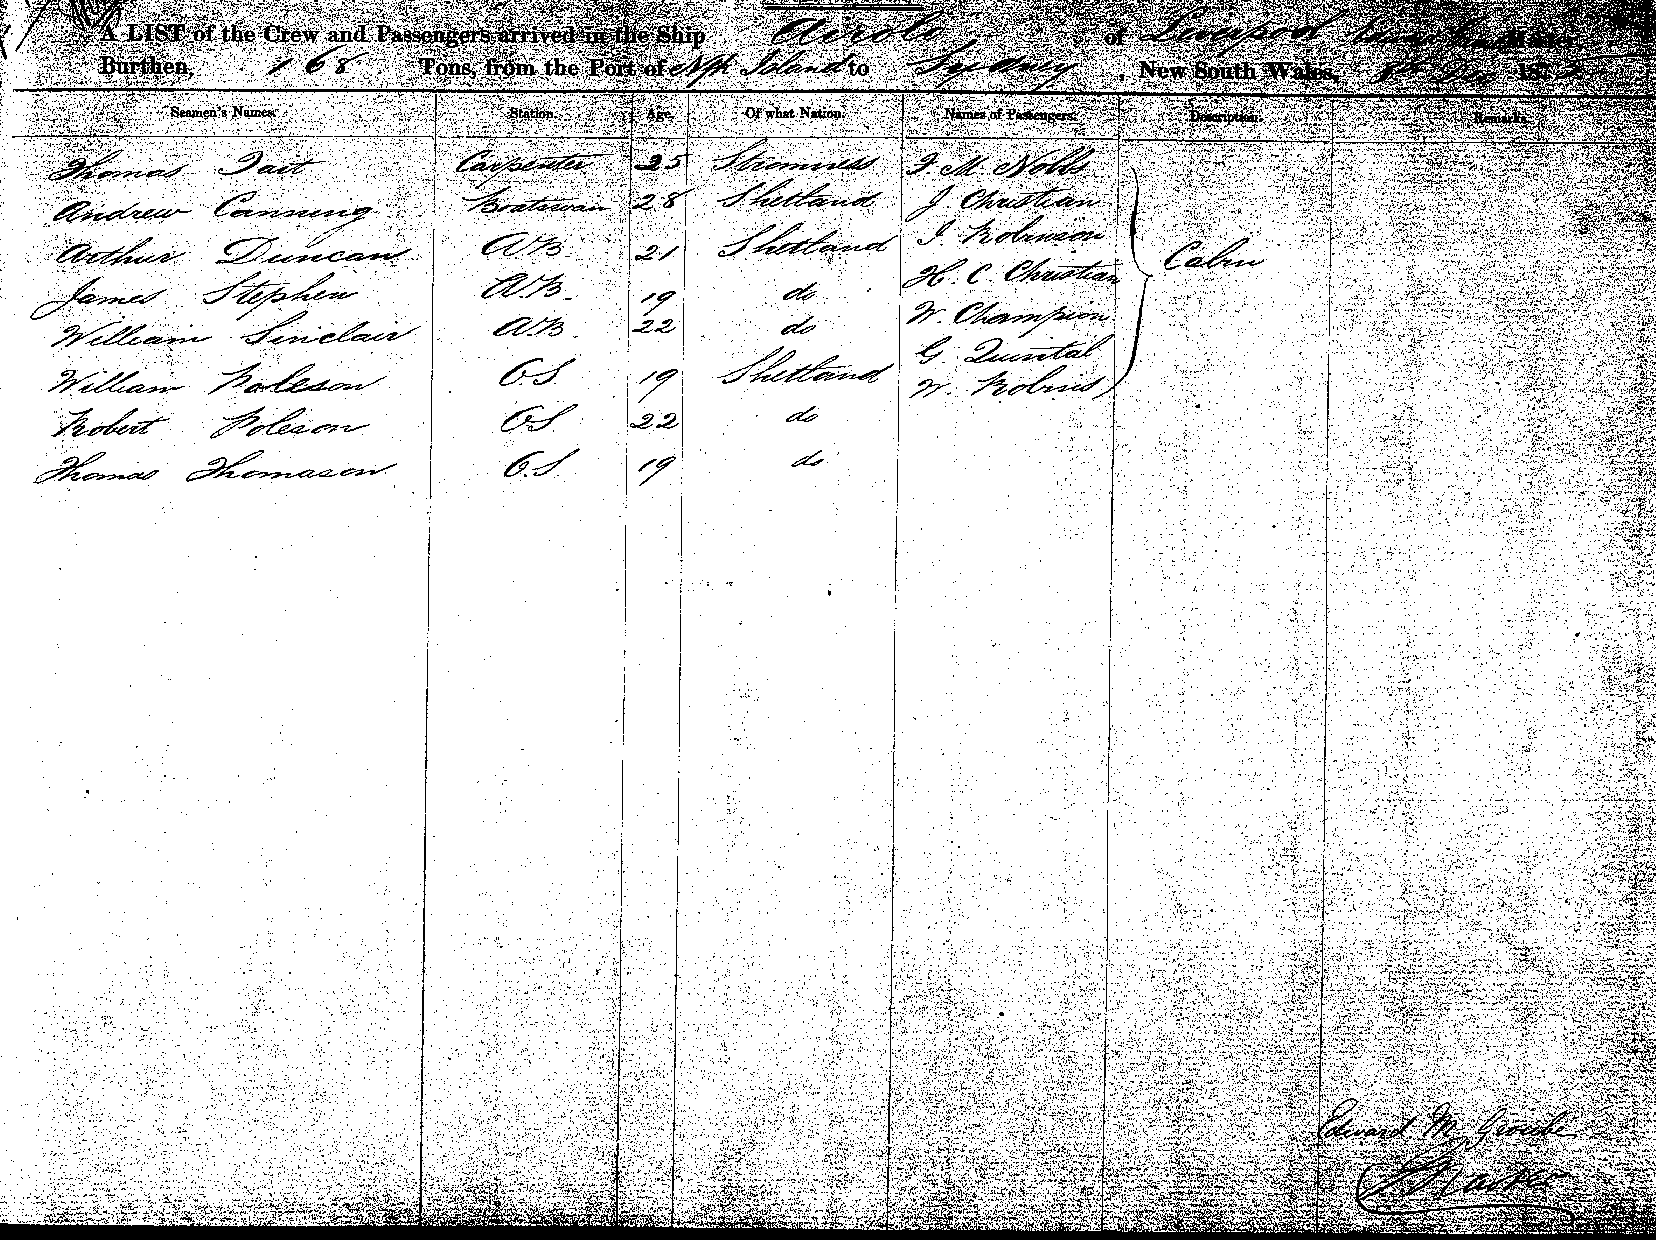 A LIST of the Crew and Passengers arrived in the Ship Airolo of Liverpool
Burthen, 168 Tons, from the Port of Nflk Island to Sydney, New South Wales, 8th Dec 187
Seamen's Names. Station. Age. Of what Nation. Names of Passengers. Description. Remarks.
Thomas Tait Carpenter 25 Stromness I. M. Nobbs
Andrew Canning Boatswan 28 Shetland J Christian
Arthur Duncan AB 21 Shetland I. Robinson
James Stephen A.B. 19 do H. C. Christian Cabin
William Sinclair AB 22 do W. Champion
William Poleson OS 19 Shetland G Quintal
W. Robins
Robert Poleson OS 22 do
Thomas Thomason O.S 19 do
Edward M